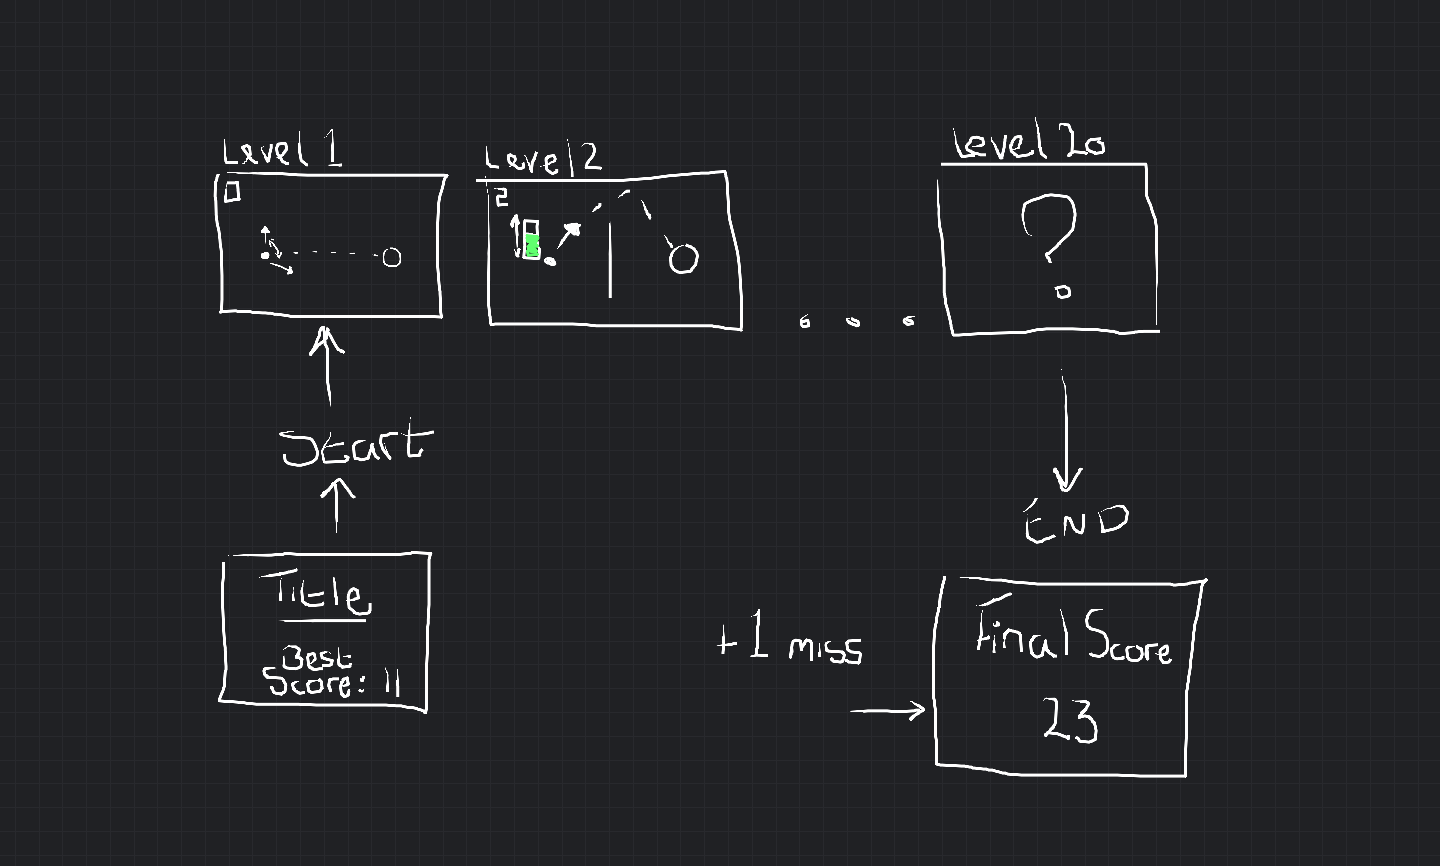 Level 1
Level 2
Level 20
0
2
?
Start
END
Title
Best
Score: 11
+1 miss
Final Score
23